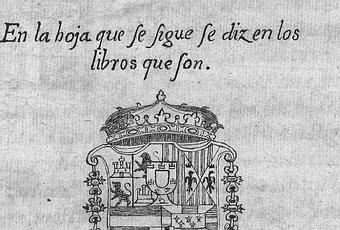 En la hoja que ſe ſigue ſe dizen los
libros que ſon.